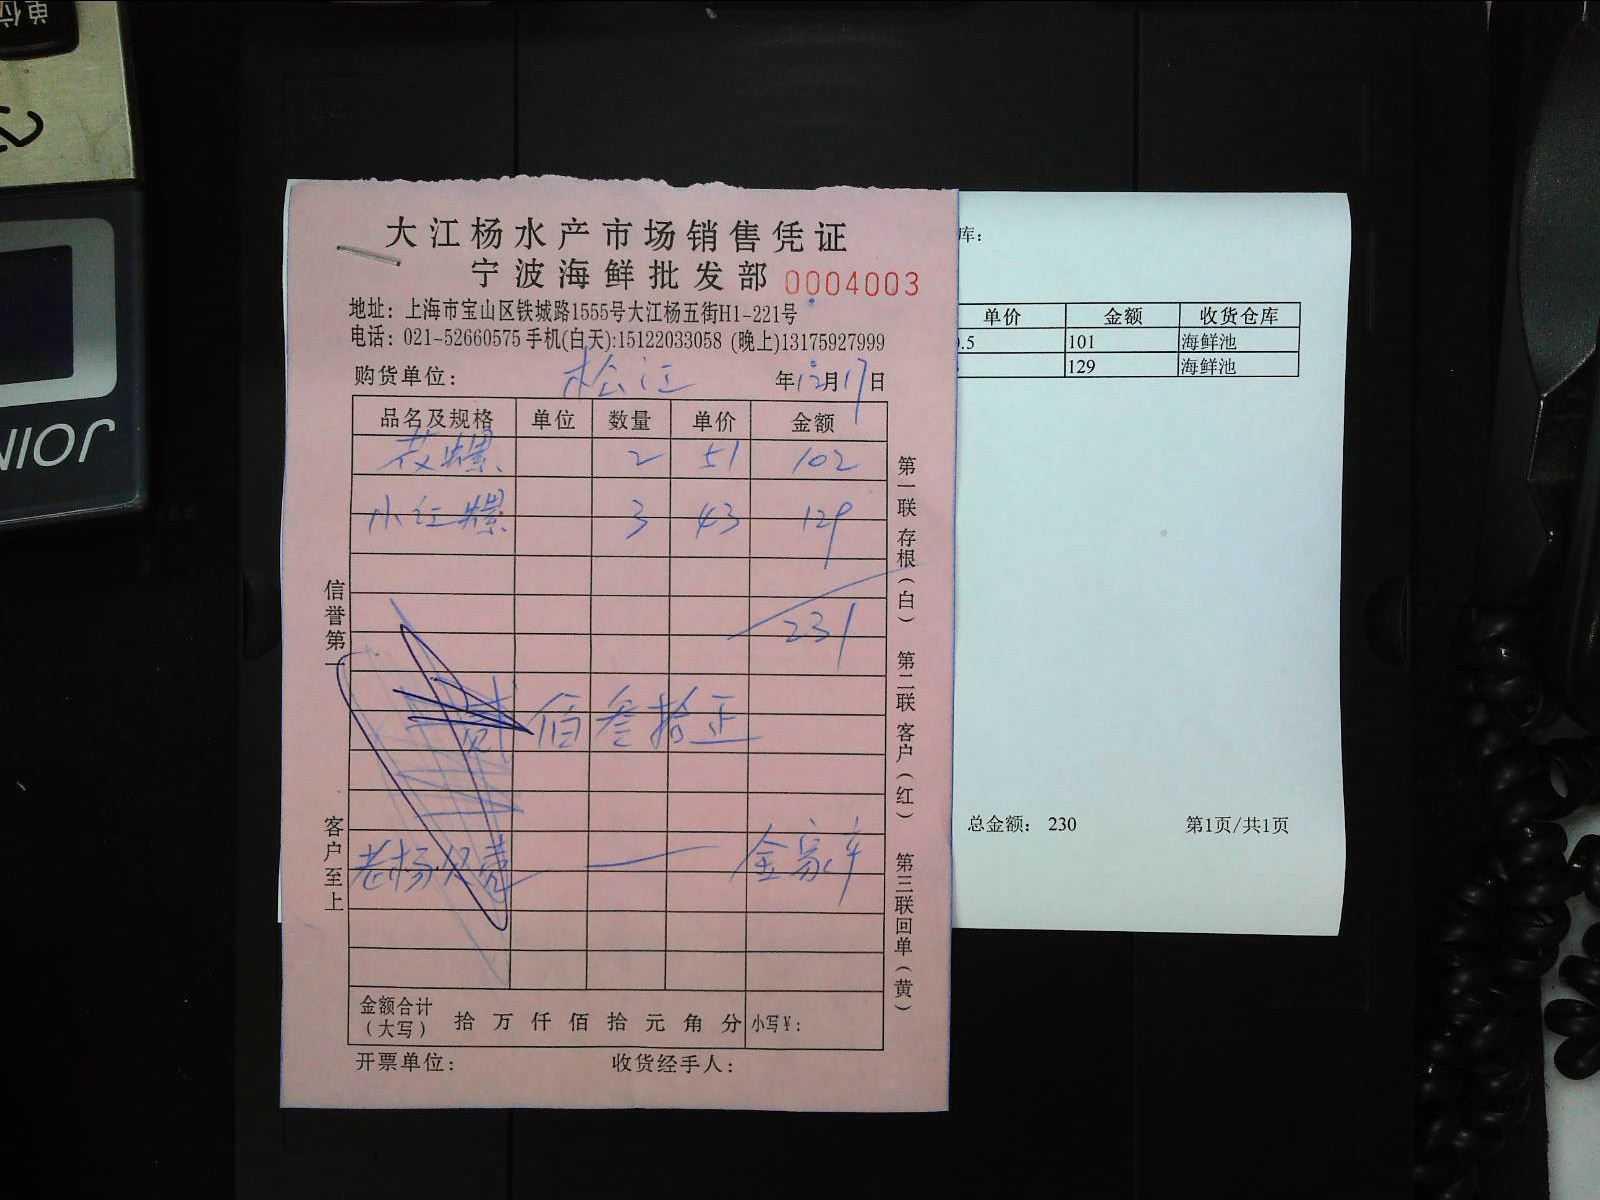 单位
JOIN
大江杨水产市场销售凭证
宁波海鲜批发部 0004003
地址：上海市宝山区铁城路1555号大江杨五街H1-221号
电话：021-52660575 手机(白天):15122033058 (晚上)13175927999
购货单位： 松江 年12月17日
品名及规格 单位 数量 单价 金额
花螺 2 51 102
小红螺 3 43 129
231
贰佰叁拾正
老杨 金家辛
信誉第一
客户至上
第一联存根（白） 第二联客户（红） 第三联回单（黄）
金额合计（大写） 拾 万 仟 佰 拾 元 角 分 小写¥：
开票单位： 收货经手人：
库：
单价 金额 收货仓库
.5 101 海鲜池
129 海鲜池
总金额： 230 第1页/共1页